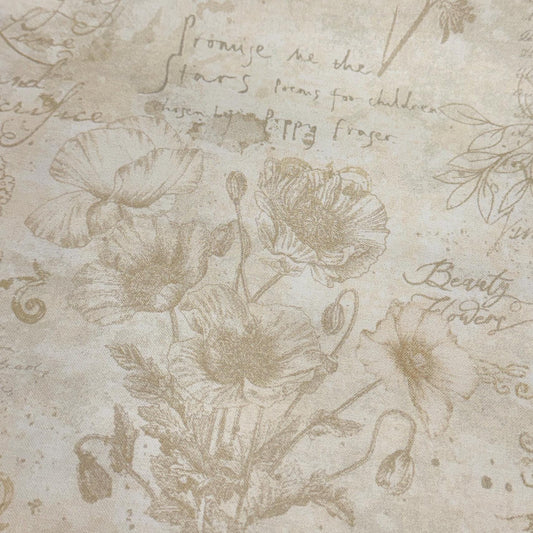 Promise me the
Stars Poems for children
chosen by Poppy Fraser
and
Sacrifice
Beauty
Flowers